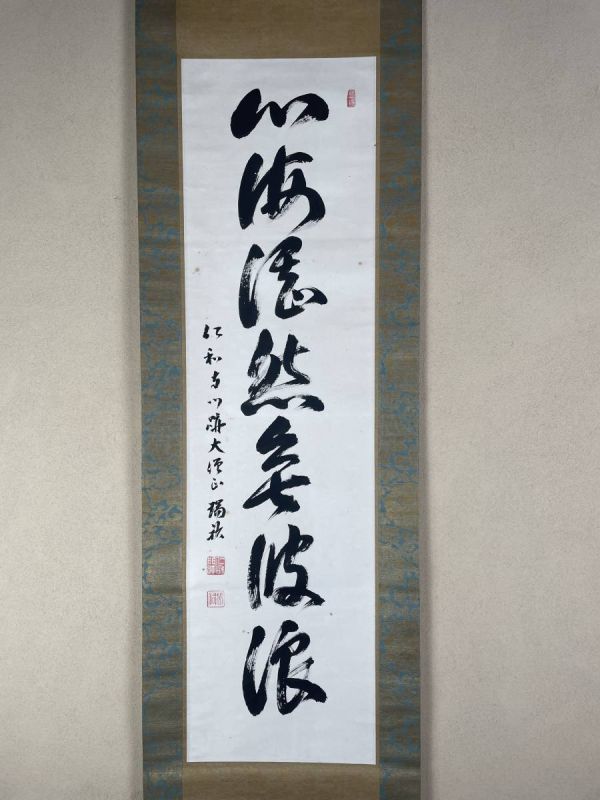 心海湛然無波浪
仁和寺門跡大僧正瑞秋